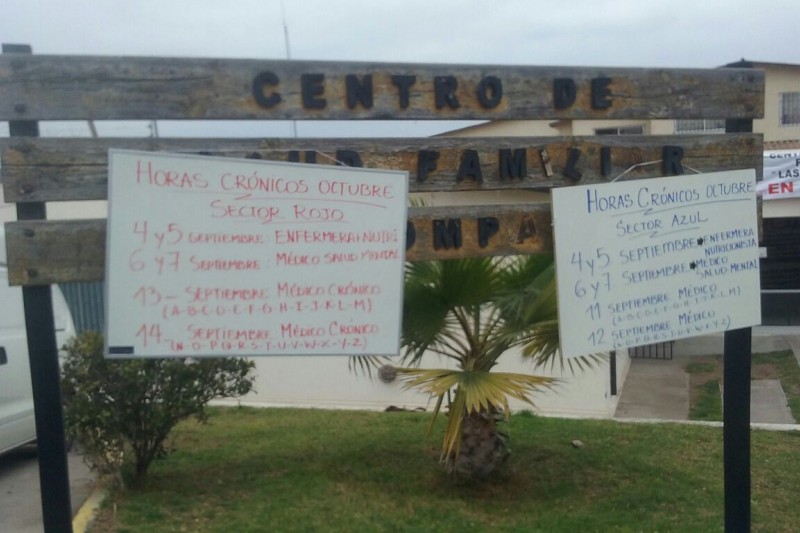 CENTRO DE
SALUD FAMILIAR
COMPA
HORAS CRÓNICOS OCTUBRE
SECTOR ROJO
4 y 5 SEPTIEMBRE: ENFERMERA Y NUTRI
6 y 7 SEPTIEMBRE: MÉDICO SALUD MENTAL
13 - SEPTIEMBRE MÉDICO CRÓNICO
(A-B-C-D-E-F-G-H-I-J-K-L-M)
14 - SEPTIEMBRE MÉDICO CRÓNICO
(N-O-P-Q-R-S-T-U-V-W-X-Y-Z)
HORAS CRÓNICOS OCTUBRE
SECTOR AZUL
4 y 5 SEPTIEMBRE ENFERMERA
NUTRICIONISTA
6 y 7 SEPTIEMBRE MÉDICO
SALUD MENTAL
11 SEPTIEMBRE MÉDICO
(A-B-C-D-E-F-G-H-I-J-K-L-M)
12 SEPTIEMBRE MÉDICO
"LAS
EN